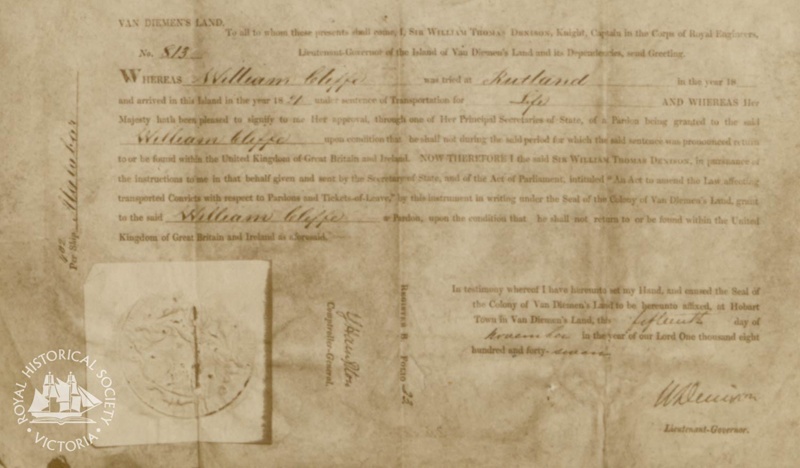 VAN DIEMEN'S LAND.
To all to whom these presents shall come, I, SIR WILLIAM THOMAS DENISON, Knight, Captain in the Corps of Royal Engineers,
No. 813 Lieutenant-Governor of the Island of Van Diemen's Land and its Dependencies, send Greeting.
WHEREAS William Cliffe was tried at Rutland in the year 18
and arrived in this Island in the year 18 21 under sentence of Transportation for Life AND WHEREAS Her
Majesty hath been pleased to signify to me Her approval, through one of Her Principal Secretaries of State, of a Pardon being granted to the said
William Cliffe upon condition that he shall not during the said period for which the said sentence was pronounced return
to or be found within the United Kingdom of Great Britain and Ireland. NOW THEREFORE I the said SIR WILLIAM THOMAS DENISON, in pursuance of
the instructions to me in that behalf given and sent by the Secretary of State, and of the Act of Parliament, intituled "An Act to amend the Law affecting
transported Convicts with respect to Pardons and Tickets-of-Leave," by this instrument in writing under the Seal of the Colony of Van Diemen's Land, grant
to the said William Cliffe a Pardon, upon the condition that he shall not return to or be found within the United
Kingdom of Great Britain and Ireland as aforesaid.
Per Ship Malabar
In testimony whereof I have hereunto set my Hand, and caused the Seal of
the Colony of Van Diemen's Land to be hereunto affixed, at Hobart
Town in Van Diemen's Land, this fifteenth day of
November in the year of our Lord One thousand eight
hundred and forty-seven
Comptroller-General.
REGISTER B FOLIO 28
W Denison
Lieutenant-Governor.
ROYAL HISTORICAL SOCIETY
VICTORIA